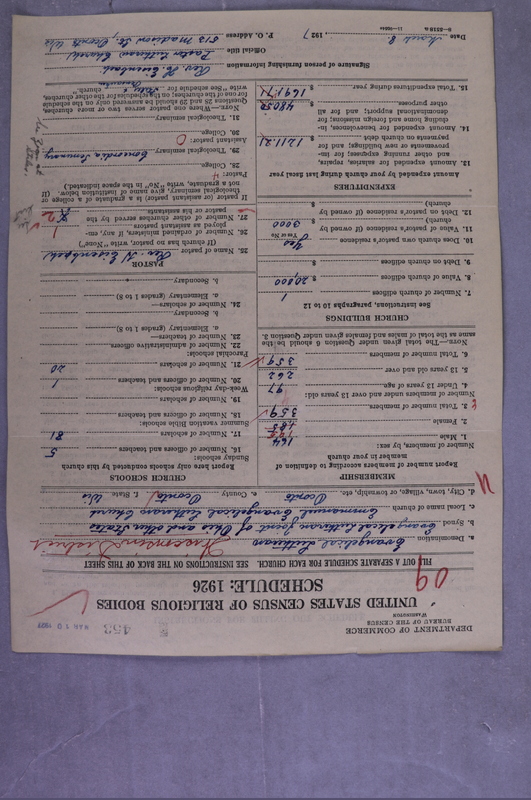 DEPARTMENT OF COMMERCE
BUREAU OF THE CENSUS
WASHINGTON
453
MAR 10 1927
UNITED STATES CENSUS OF RELIGIOUS BODIES
SCHEDULE: 1926
09
FILL OUT A SEPARATE SCHEDULE FOR EACH CHURCH. SEE INSTRUCTIONS ON THE BACK OF THIS SHEET
a. Denomination Evangelical Lutheran Wisconsin District
b. Synod Evangelical Lutheran Joint of Ohio and other States
c. Local name of church Emmanuel Evangelical Lutheran Church
d. City, town, village, or township, etc. Oconto e. County Oconto f. State Wis
MEMBERSHIP
Report number of members according to definition of member in your church
Number of members, by sex:
1. Male 164
2. Female
3. Total number of members 359
Number of members under and over 13 years old:
4. Under 13 years of age 97
5. 13 years old and over 262
6. Total number of members 359
Note.—The total given under Question 6 should be the same as the total of males and females given under Question 3.
CHURCH BUILDINGS
See instructions, paragraphs 10 to 12
7. Number of church edifices 1
8. Value of church edifices $ 20,000
9. Debt on church edifices $
10. Does church own pastor's residence Yes
Yes or No
11. Value of pastor's residence (if owned by church) $ 3000
12. Debt on pastor's residence (if owned by church) $
EXPENDITURES
Amount expended by your church during last fiscal year
13. Amount expended for salaries, repairs, and other running expenses; for improvements or new buildings; and for payments on church debt $ 1211.21
14. Amount expended for benevolences, including home and foreign missions; for denominational support; and for all other purposes $ 480.50
15. Total expenditures during year $ 1691.71
CHURCH SCHOOLS
Report here only schools conducted by this church
Sunday schools:
16. Number of officers and teachers 5
17. Number of scholars 81
Summer vacation Bible schools:
18. Number of officers and teachers
19. Number of scholars
Week-day religious schools:
20. Number of officers and teachers 1
21. Number of scholars 20
Parochial schools:
22. Number of administrative officers
23. Number of teachers—
a. Elementary (grades 1 to 8)
b. Secondary
24. Number of scholars—
a. Elementary (grades 1 to 8)
b. Secondary
PASTOR
25. Name of pastor Rev. H.
(If church has no pastor, write "None")
26. Number of ordained ministers, if any, employed as assistant pastors
27. Number of other churches served by the pastor or his assistants
If pastor (or assistant pastor) is a graduate of a college or theological seminary, give name of institution below. (If not a graduate, write "No" in the space indicated.)
Pastor:
28. College
29. Theological seminary Concordia Seminary
Assistant pastor:
30. College
31. Theological seminary
Note.—Where one pastor serves two or more churches, Questions 28 and 29 should be answered only on the schedule for one of the churches; on the schedules for the other churches, write "See schedule for church."
Signature of person furnishing information Rev. H.
Official title Pastor Lutheran Church
P. O. Address 515 Madison St. Oconto Wis
Date March 8, 1927